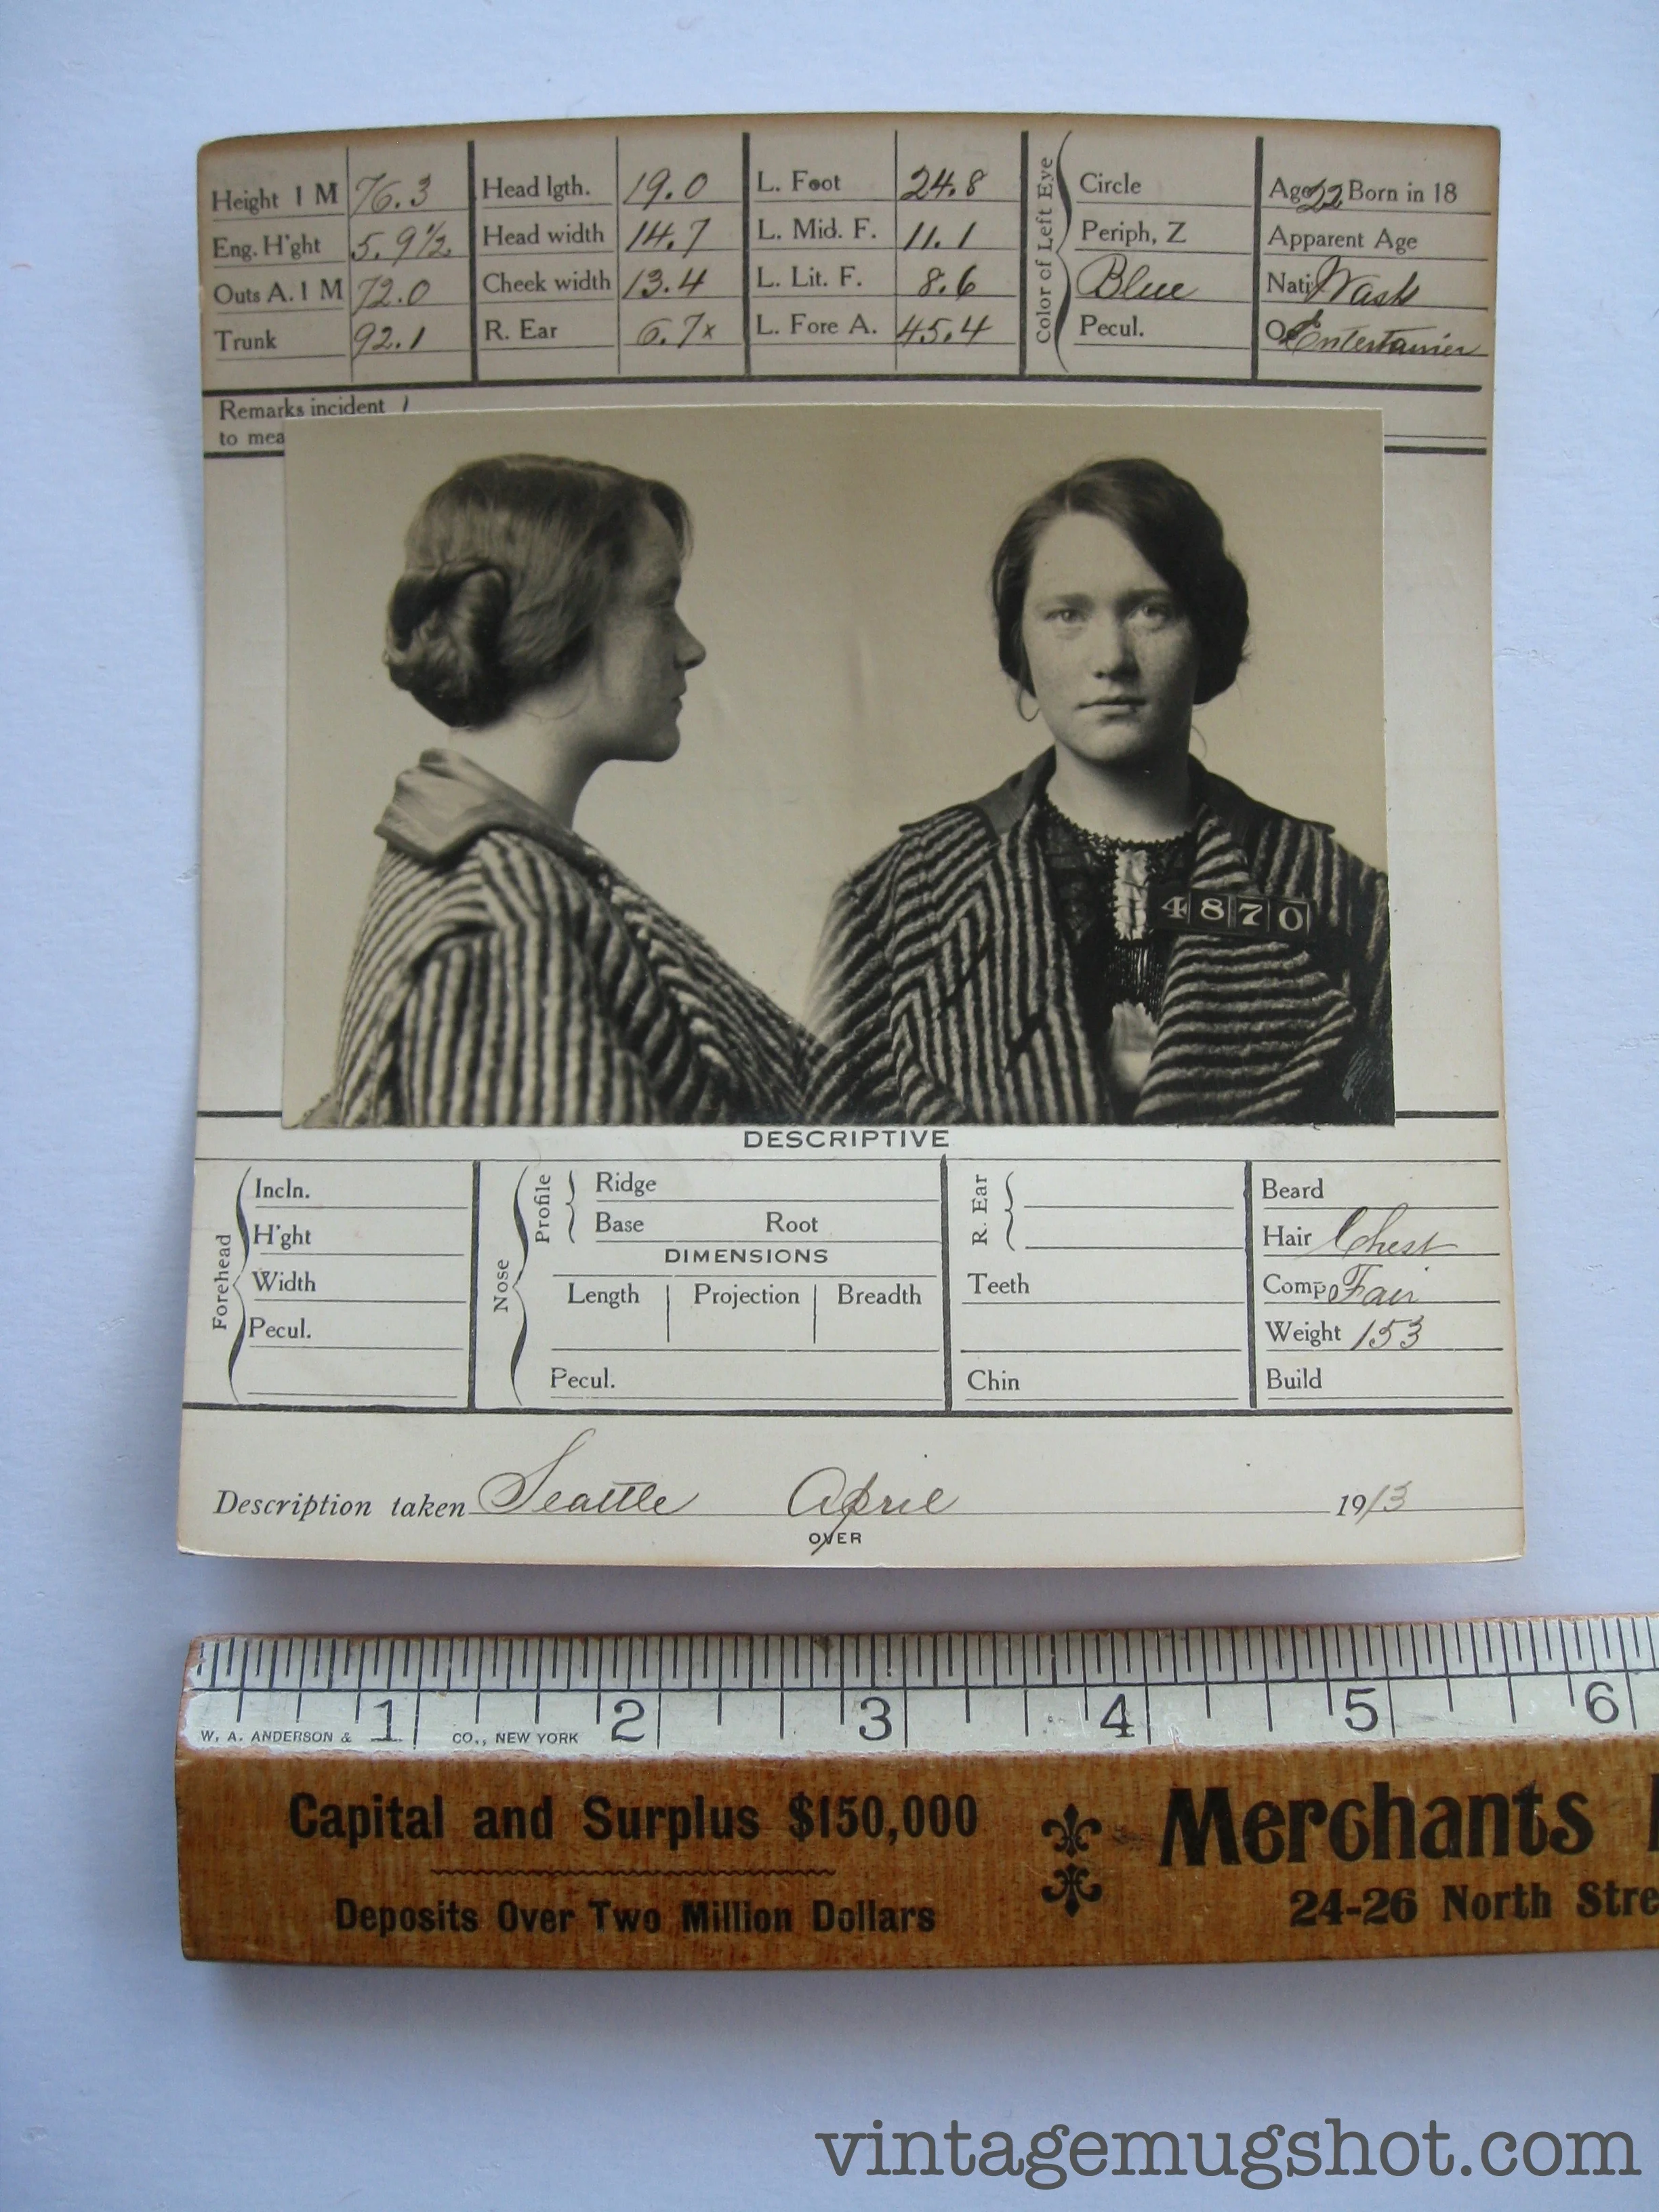 Height 1 M 76.3 Head lgth. 19.0 L. Foot 24.8 Circle Age 22 Born in 18
Eng. H'ght 5.9½ Head width 14.7 L. Mid. F. 11.1 Periph, Z Apparent Age
Outs A. 1 M 72.0 Cheek width 13.4 L. Lit. F. 8.6 Blue Nati Wash
Trunk 92.1 R. Ear 6.7x L. Fore A. 45.4 Pecul. Entertainer
Color of Left Eye
Remarks incident
to mea
4870
DESCRIPTIVE
Forehead
Incln.
H'ght
Width
Pecul.
Nose
Profile
Ridge
Base Root
DIMENSIONS
Length Projection Breadth
Pecul.
R. Ear
Teeth
Chin
Beard
Hair Chest
Comp Fair
Weight 153
Build
Description taken Seattle April 1913
OVER
1 2 3 4 5 6
W. A. ANDERSON & CO., NEW YORK
Capital and Surplus $150,000 Merchants
Deposits Over Two Million Dollars 24-26 North Stre
vintagemugshot.com